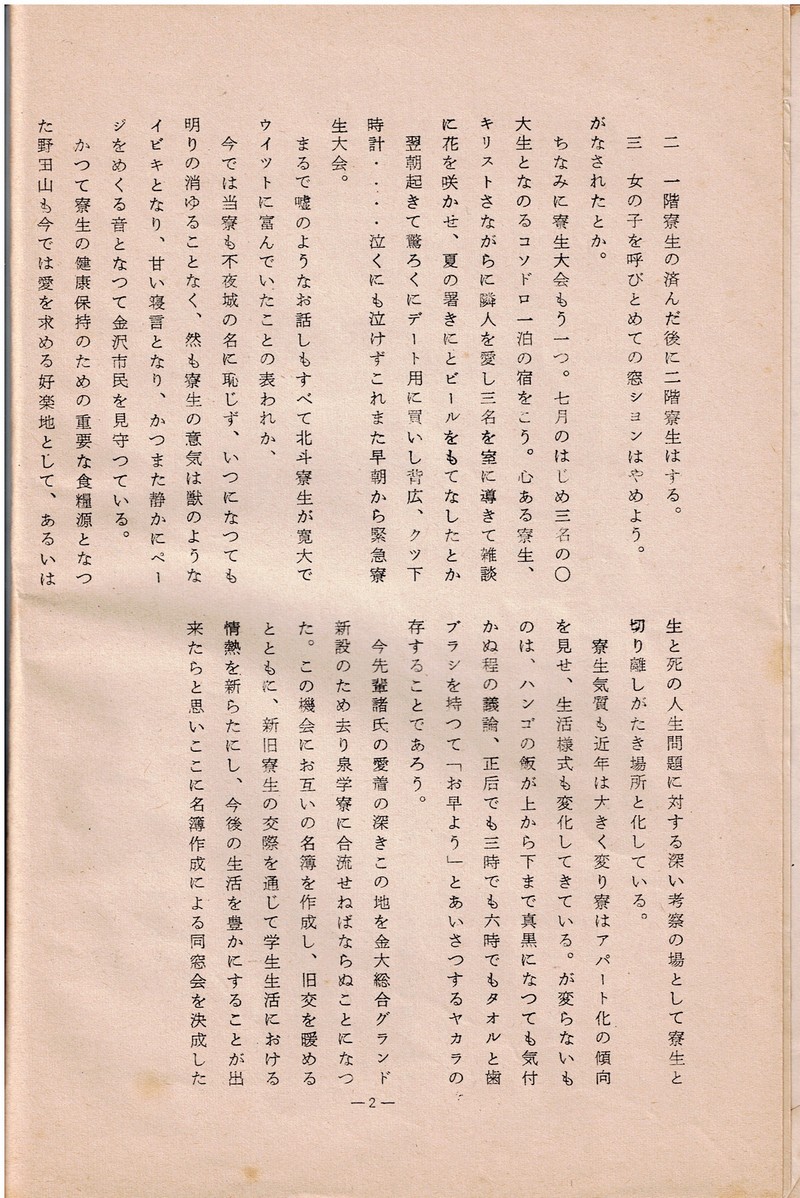 二　一階寮生の済んだ後に二階寮生はする。
三　女の子を呼びとめての窓ションはやめよう。
がなされたとか。
ちなみに寮生大会もう一つ。七月のはじめ三名の〇
大生となのるコソドロ一泊の宿をこう。心ある寮生、
キリストさながらに隣人を愛し三名を室に導きて雑談
に花を咲かせ、夏の署きにとビールをもてなしたとか
翌朝起きて驚ろくにデート用に買いし背広、クツ下
時計・・・・泣くにも泣けずこれまた早朝から緊急寮
生大会。
まるで嘘のようなお話しもすべて北斗寮生が寛大で
ウイットに富んでいたことの表われか、
今では当寮も不夜城の名に恥じず、いつになつても
明りの消ゆることなく、然も寮生の意気は獣のような
イビキとなり、甘い寝言となり、かつまた静かにペー
ジをめくる音となつて金沢市民を見守つている。
かつて寮生の健康保持のための重要な食糧源となつ
た野田山も今では愛を求める好楽地として、あるいは
生と死の人生問題に対する深い考察の場として寮生と
切り離しがたき場所と化している。
寮生気質も近年は大きく変り寮はアパート化の傾向
を見せ、生活様式も変化してきている。が変らないも
のは、ハンゴの飯が上から下まで真黒になつても気付
かぬ程の議論、正后でも三時でも六時でもタオルと歯
ブラシを持つて「お早よう」とあいさつするヤカラの
存することであろう。
今先輩諸氏の愛着の深きこの地を金大総合グランド
新設のため去り泉学寮に合流せねばならぬことになつ
た。この機会にお互いの名簿を作成し、旧交を暖める
とともに、新旧寮生の交際を通じて学生生活における
情熱を新らたにし、今後の生活を豊かにすることが出
来たらと思いここに名簿作成による同窓会を決成した
—2—